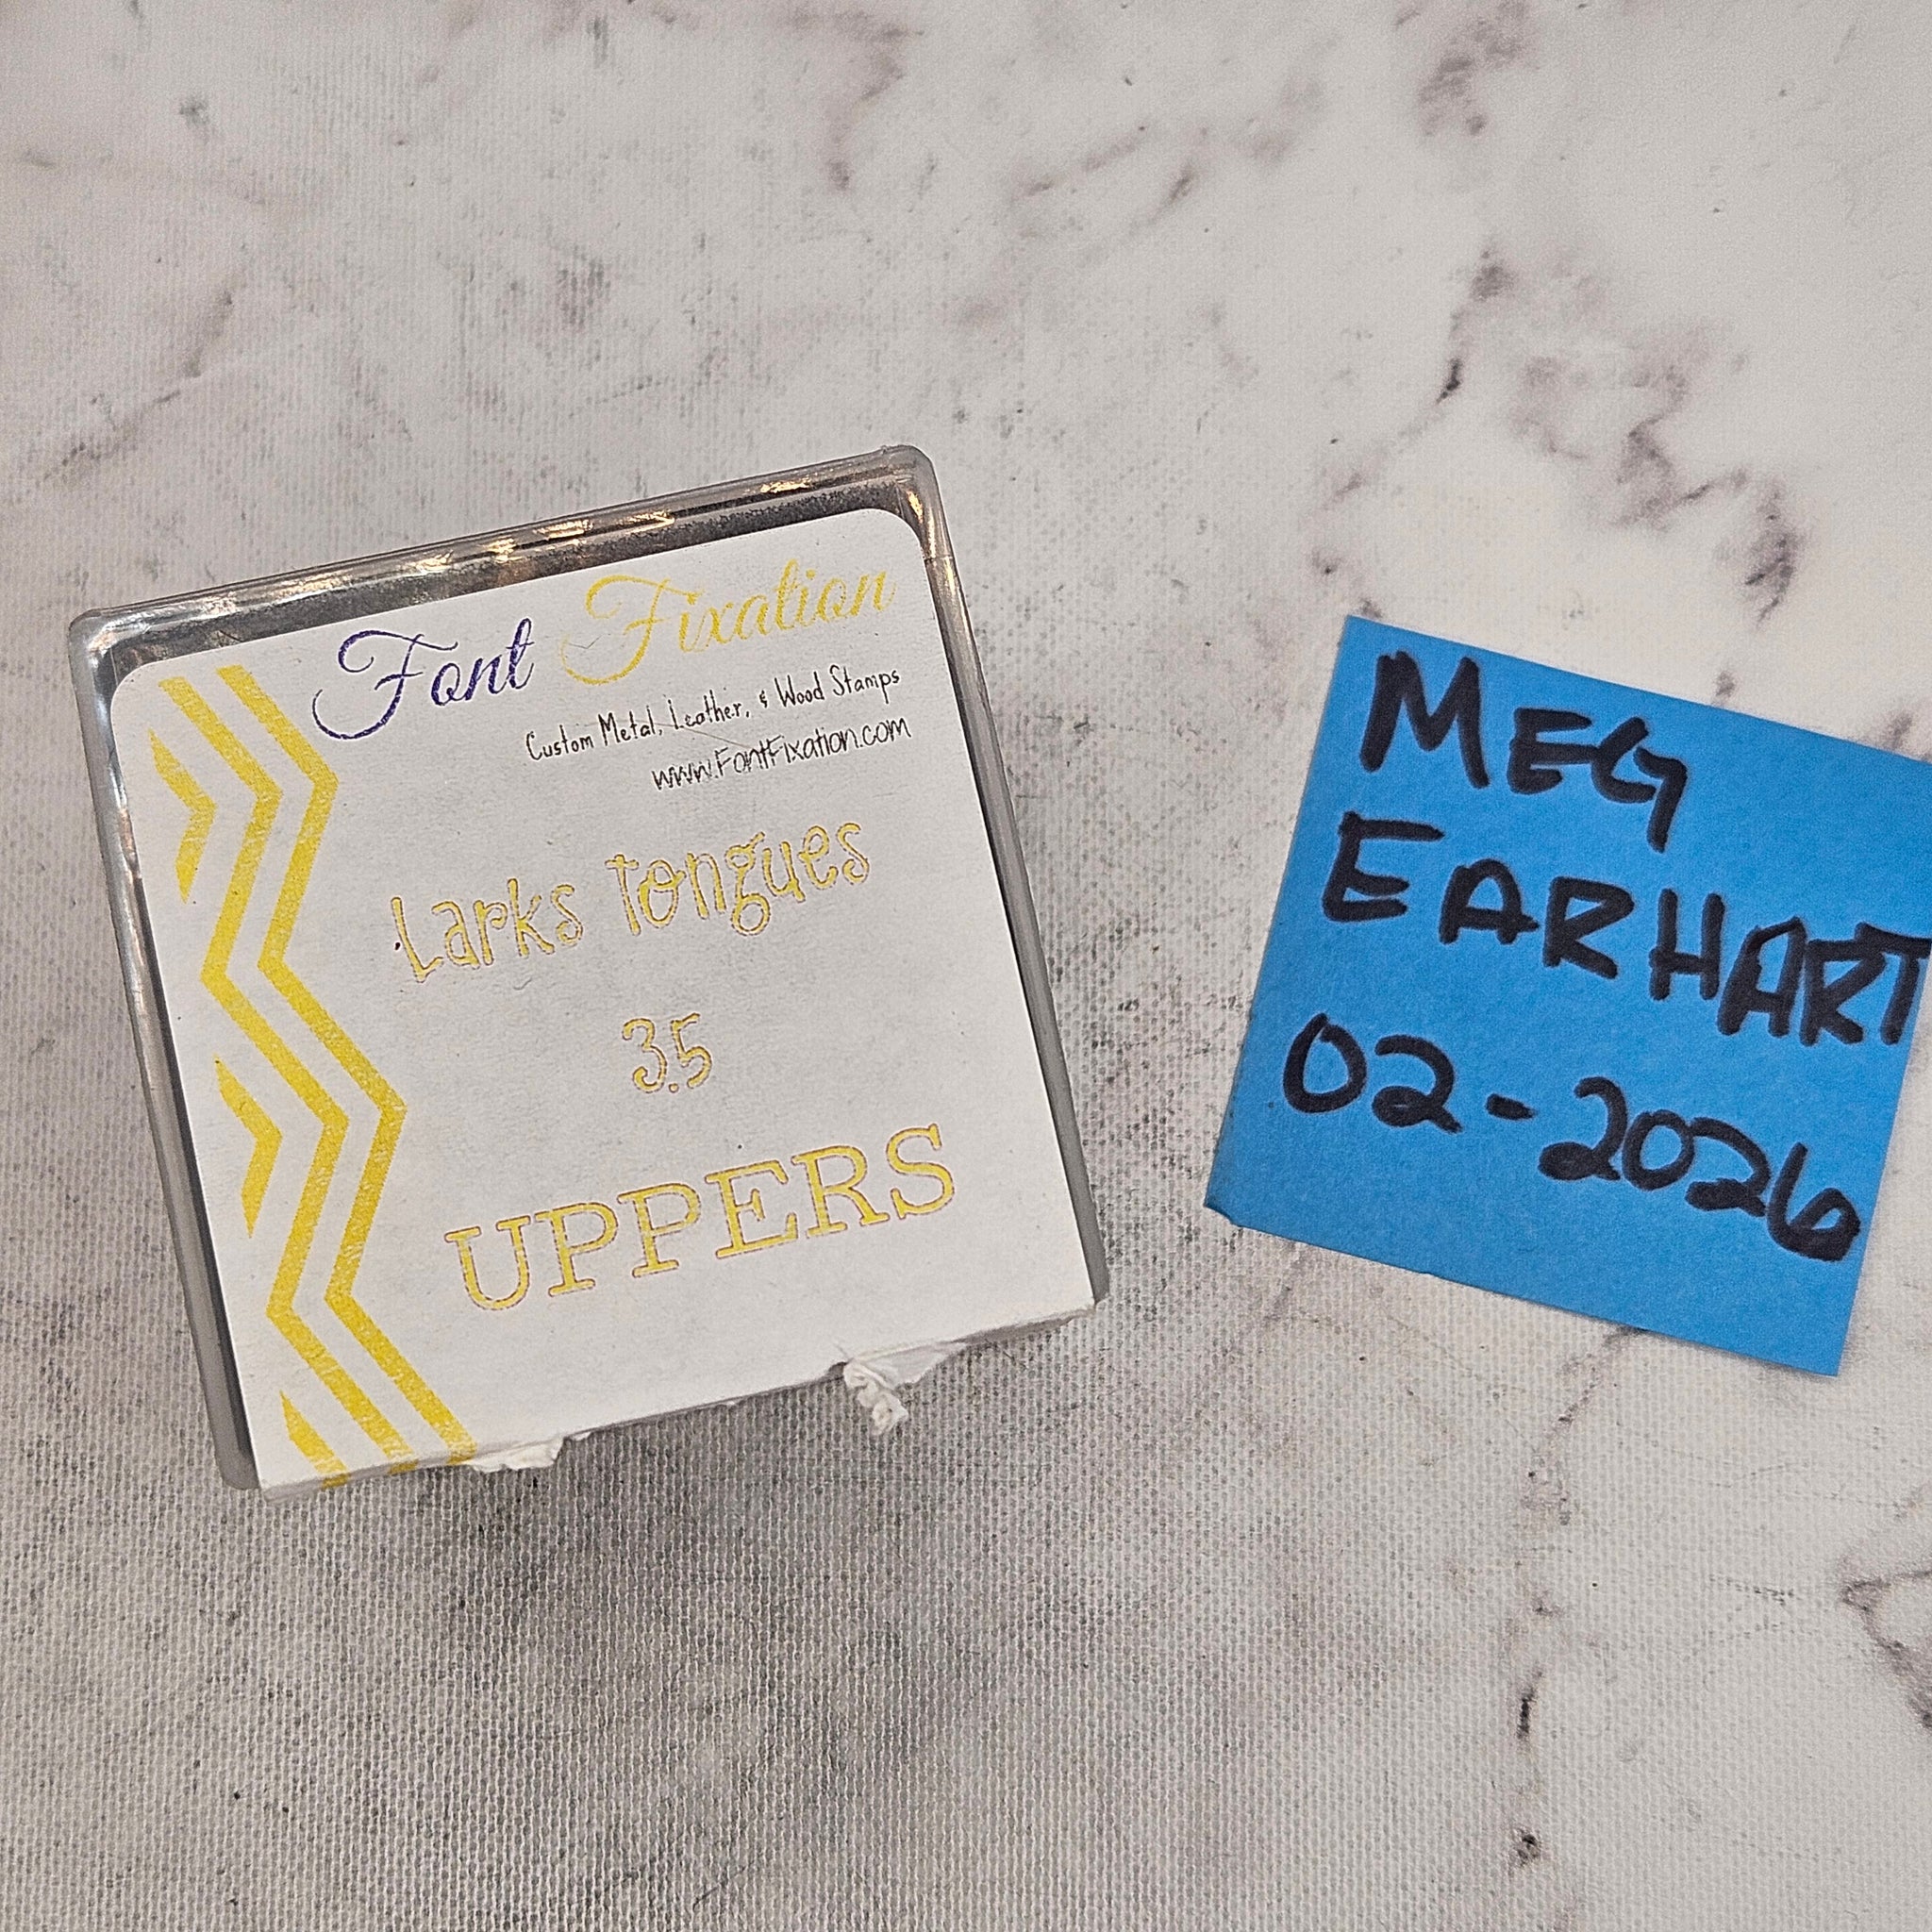 Font Fixation
Custom Metal, Leather, & Wood Stamps
www.FontFixation.com
Larks Tongues
3.5
UPPERS
MEG
EARHART
02-2026